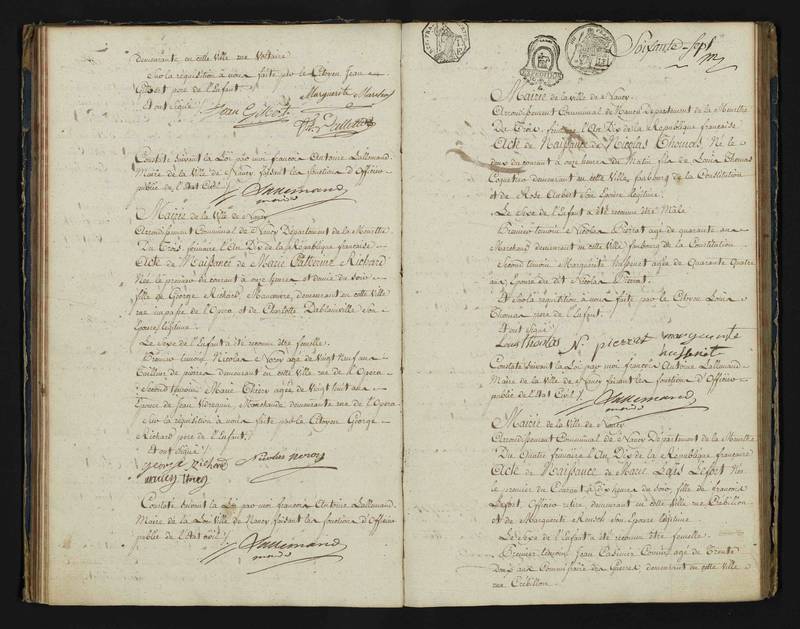 demeurante en cette Ville rue Voltaire
Sur la requisition à nous faite par le Citoyen Jean
Gilbert pere de l'Enfant
Et ont signé
Jean Gilbert Marguerite
Constaté suivant la Loi par moi françois Antoine Lallemand
Maire de la Ville de Nancy faisant les fonctions d'Officier
public de l'Etat Civil
Lallemand
maire
Mairie de la Ville de Nancy
Arrondissement Communal de Nancy Département de la Meurthe
Du Trois frimaire l'An Dix de la République française
Acte de Naissance de Marie Catherine Richard
Née le premier du courant à onze heures et demie du soir
fille de George Richard, Manœuvre, demeurant en cette Ville
rue de l'Opera et de Charlotte son
Epouse légitime
Le Sexe de l'Enfant a été reconnu être femelle.
Premier temoin Nicolas agé de Vingt Neuf ans
Tailleur de pierres demeurant en cette Ville rue de l'Opera
Second temoin Marie Thiery agée de Vingt huit ans
Epouse de Jean Marchande demeurante rue de l'Opera
Sur la requisition à nous faite par le Citoyen George
Richard pere de l'Enfant
Et ont signé
george richard Nicolas
Constaté suivant la Loi par moi françois Antoine Lallemand
Maire de la Ville de Nancy faisant les fonctions d'Officier
public de l'état civil
Lallemand
maire
Soixante-Sept
Mairie de la Ville de Nancy
Arrondissement Communal de Nancy Département de la Meurthe
Du Trois frimaire l'An Dix de la République française
Acte de Naissance de Nicolas Thomas Né le
deux du courant à onze heures du Matin fils de Louis Thomas
Coquetier demeurant en cette Ville fauxbourg de la Constitution
et de Rose Aubert son Epouse légitime.
Le Sexe de l'Enfant a été reconnu être Mâle
Premier temoin Nicolas Pierrot agé de quarante ans
Marchand demeurant en cette Ville fauxbourg de la Constitution
Second temoin Marguerite agée de Quarante Quatre
ans Epouse dudit Nicolas Pierrot.
Et sur la requisition à nous faite par le Citoyen Louis
Thomas pere de l'Enfant.
Et ont signé
Louis thomas N. pierrot marguerite
Constaté suivant la Loi par moi françois Antoine Lallemand
Maire de la Ville de Nancy faisant les fonctions d'Officier
public de l'Etat Civil
Lallemand
maire
Mairie de la Ville de Nancy
Arrondissement Communal de Nancy Département de la Meurthe
Du Quatre frimaire l'An Dix de la République française
Acte de Naissance de Marie Laïs Lefort Née
le premier du Courant à Dix heures du soir, fille de françois
Lefort, Officier retiré demeurant en cette Ville rue Crébillon
et de Marguerite son Epouse légitime
Le Sexe de l'Enfant a été reconnu être femelle.
Premier temoin Jean Casimir agé de Trente
Deux ans Commissaire des Guerres, demeurant en cette Ville
rue Crébillon